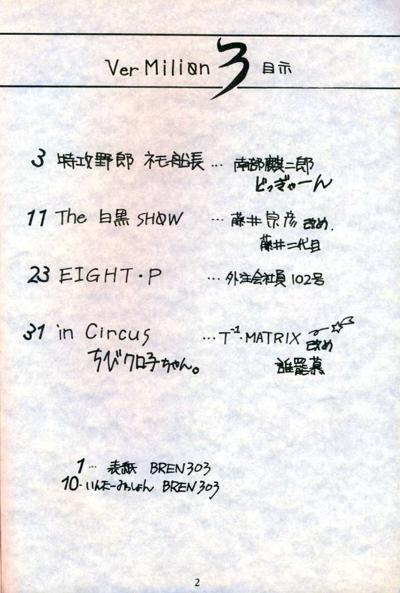 Ver Milion 3 目示
3 特攻野郎 ネモ船長 … 南部麒二郎
どっぎゃーん
11 The 白黒 SHOW … 藤井宗彦 改め.
藤井二代目
23 EIGHT・P … 外注会社員102号
31 in Circus … T⁻¹・MATRIX 改め
ちびクロ子ちゃん。
1… 表紙 BREN303
10… いんたーみっしょん BREN303
2